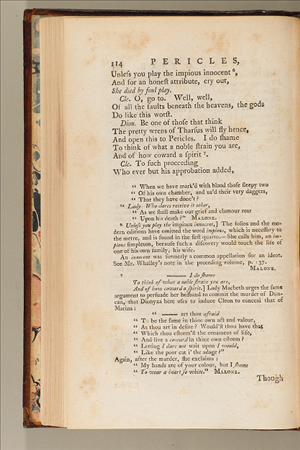 114 PERICLES,
Unleſs you play the impious innocent ⁶,
And for an honeſt attribute, cry out,
She died by foul play.
Cle. O, go to. Well, well,
Of all the faults beneath the heavens, the gods
Do like this worſt.
Dion. Be one of thoſe that think
The pretty wrens of Tharſus will fly hence,
And open this to Pericles. I do ſhame
To think of what a noble ſtrain you are,
And of how coward a ſpirit ⁷.
Cle. To ſuch proceeding
Who ever but his approbation added,
“ When we have mark'd with blood thoſe ſleepy two
“ Of his own chamber, and us'd their very daggers,
“ That they have done't?
“ Lady. Who dares receive it other,
“ As we ſhall make our grief and clamour roar
“ Upon his death?” MALONE.
⁶ Unleſs you play the impious innocent,] The folios and the mo-
dern editions have omitted the word impious, which is neceſſary to
the metre, and is found in the firſt quarto.—She calls him, an im-
pious ſimpleton, becauſe ſuch a diſcovery would touch the life of
one of his own family, his wife.
An innocent was formerly a common appellation for an ideot.
See Mr. Whalley's note in the preceding volume, p. 137.
MALONE.
⁷ —— I do ſhame
To think of what a noble ſtrain you are,
And of how coward a ſpirit.] Lady Macbeth urges the ſame
argument to perſuade her huſband to commit the murder of Dun-
can, that Dionyza here uſes to induce Cleon to conceal that of
Marina:
“ —— art thou afraid
“ To be the ſame in thine own act and valour,
“ As thou art in deſire? Would'ſt thou have that
“ Which thou eſteem'ſt the ornament of life,
“ And live a coward in thine own eſteem?
“ Letting I dare not wait upon I would,
“ Like the poor cat i' the adage?”
Again, after the murder, ſhe exclaims:
“ My hands are of your colour, but I ſhame
“ To wear a heart ſo white.” MALONE.
Though